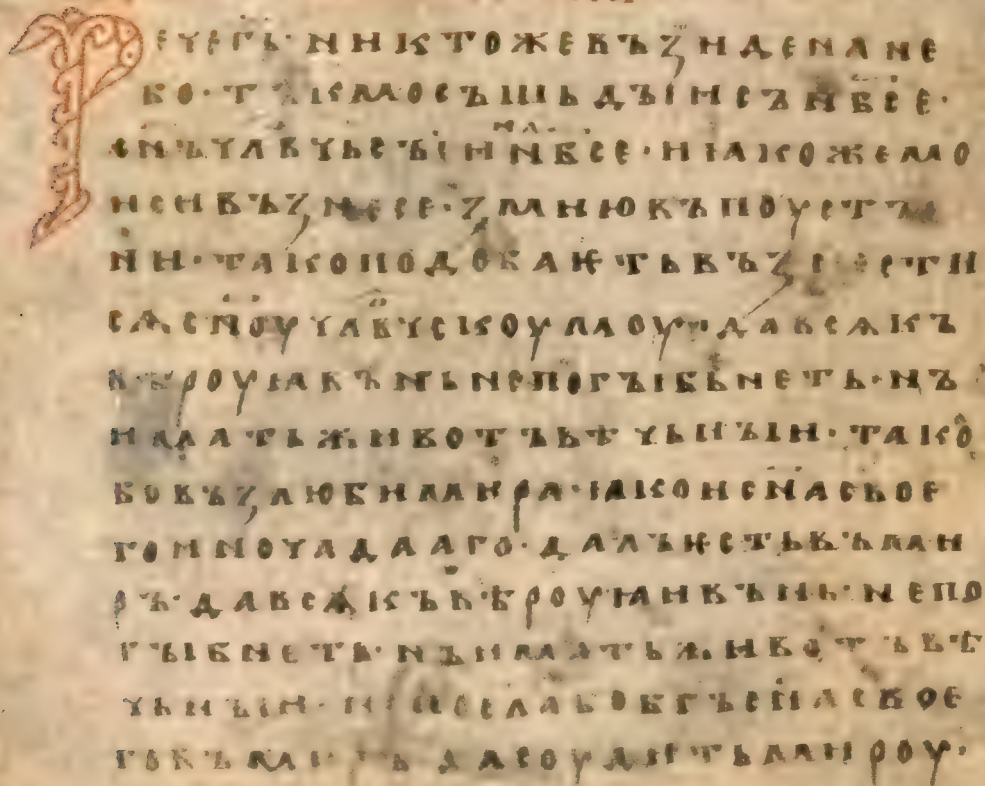 Рече г҃ь· никтоже възиде на не
бо· тъкмо съшьдъıи съ нб҃се·
сн҃ъ чл҃вчьскъıи на нб҃се· и ꙗкоже мо
иси възнесе· змию въ поустъı
ни· тако подобаѥть възнести
сѧ сн҃оу чл҃вчскоумоу· да всѧкъ
вѣроуꙗ въ нь не погъıбьнеть· нъ
имать животъ вѣчьнъıи· тако
бо възлюби мира· ꙗко и сн҃а своѥ
го иночадааго· далъ ѥсть въ ми
ръ· да всѧкъ вѣроуꙗи въ нь· не по
гъıбнеть· нъ имать животъ вѣ
чьнъıи· не посла бо б҃гъ сн҃а своѥ
го въ миръ да соудить мироу·